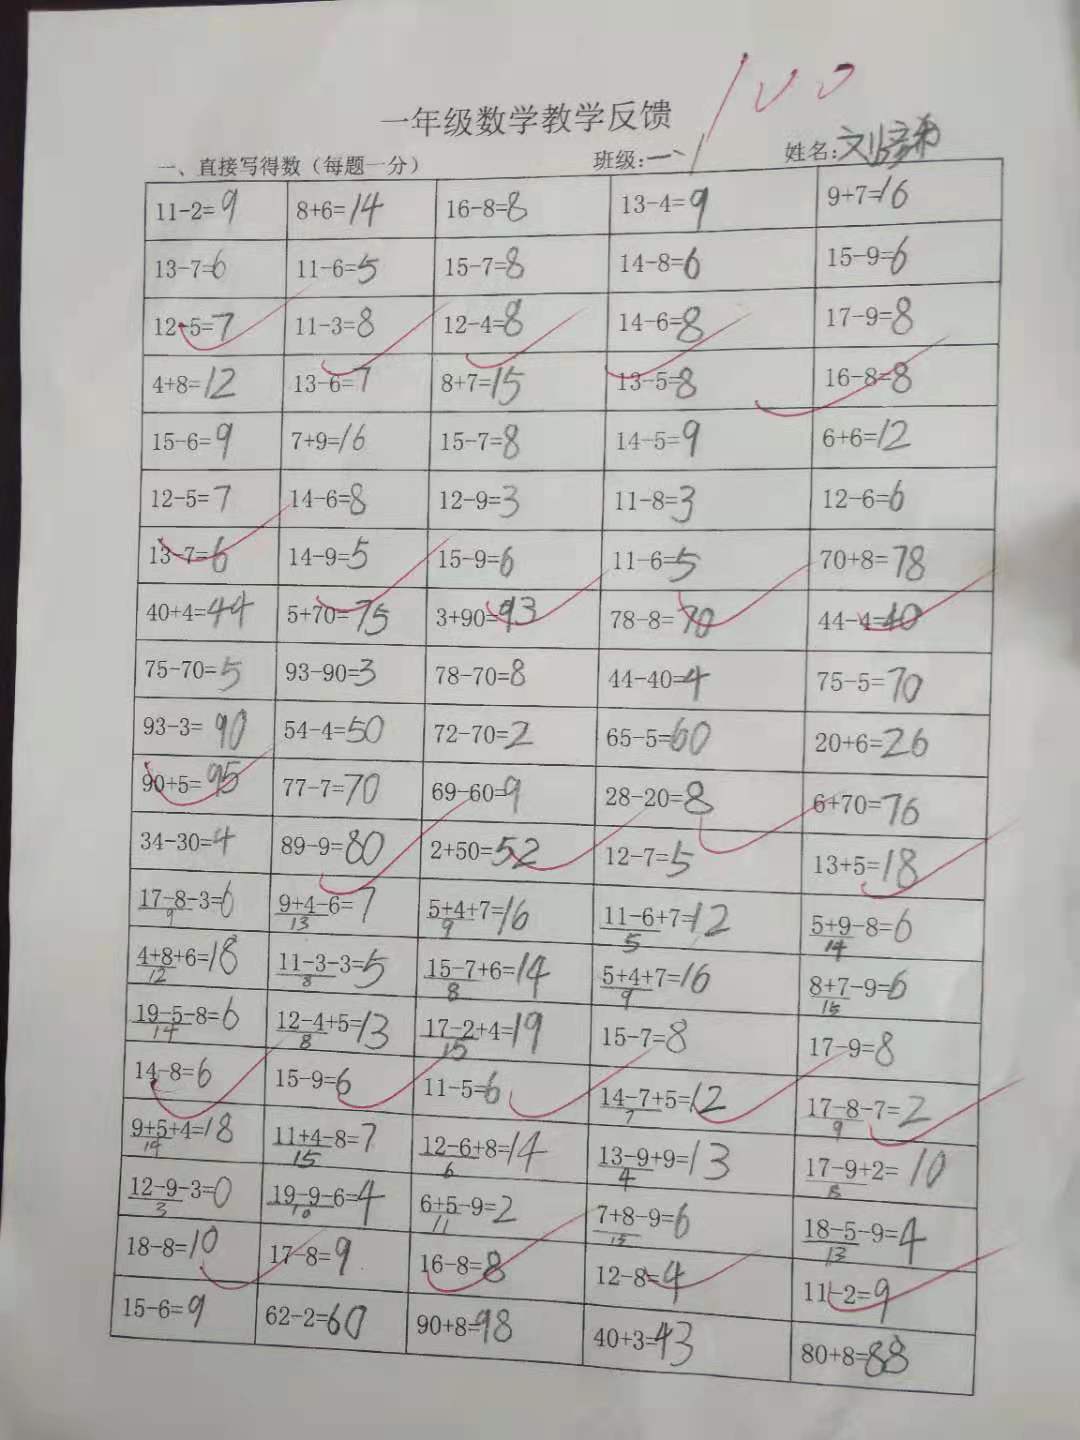 100
一年级数学教学反馈
一、直接写得数（每题一分） 班级:一、1 姓名:刘
11-2=9 8+6=14 16-8=8 13-4=9 9+7=16
13-7=6 11-6=5 15-7=8 14-8=6 15-9=6
12-5=7 11-3=8 12-4=8 14-6=8 17-9=8
4+8=12 13-6=7 8+7=15 13-5=8 16-8=8
15-6=9 7+9=16 15-7=8 14-5=9 6+6=12
12-5=7 14-6=8 12-9=3 11-8=3 12-6=6
13-7=6 14-9=5 15-9=6 11-6=5 70+8=78
40+4=44 5+70=75 3+90=93 78-8=70 44-4=40
75-70=5 93-90=3 78-70=8 44-40=4 75-5=70
93-3=90 54-4=50 72-70=2 65-5=60 20+6=26
90+5=95 77-7=70 69-60=9 28-20=8 6+70=76
34-30=4 89-9=80 2+50=52 12-7=5 13+5=18
17-8-3=6 9+4-6=7 5+4+7=16 11-6+7=12 5+9-8=6
9 13 9 5 14
4+8+6=18 11-3-3=5 15-7+6=14 5+4+7=16 8+7-9=6
12 8 8 9 15
19-5-8=6 12-4+5=13 17-2+4=19 15-7=8 17-9=8
14 8 15
14-8=6 15-9=6 11-5=6 14-7+5=12 17-8-7=2
7 9
9+5+4=18 11+4-8=7 12-6+8=14 13-9+9=13 17-9+2=10
14 15 6 4 8
12-9-3=0 19-9-6=4 6+5-9=2 7+8-9=6 18-5-9=4
3 10 11 15 13
18-8=10 17-8=9 16-8=8 12-8=4 11-2=9
15-6=9 62-2=60 90+8=98 40+3=43 80+8=88